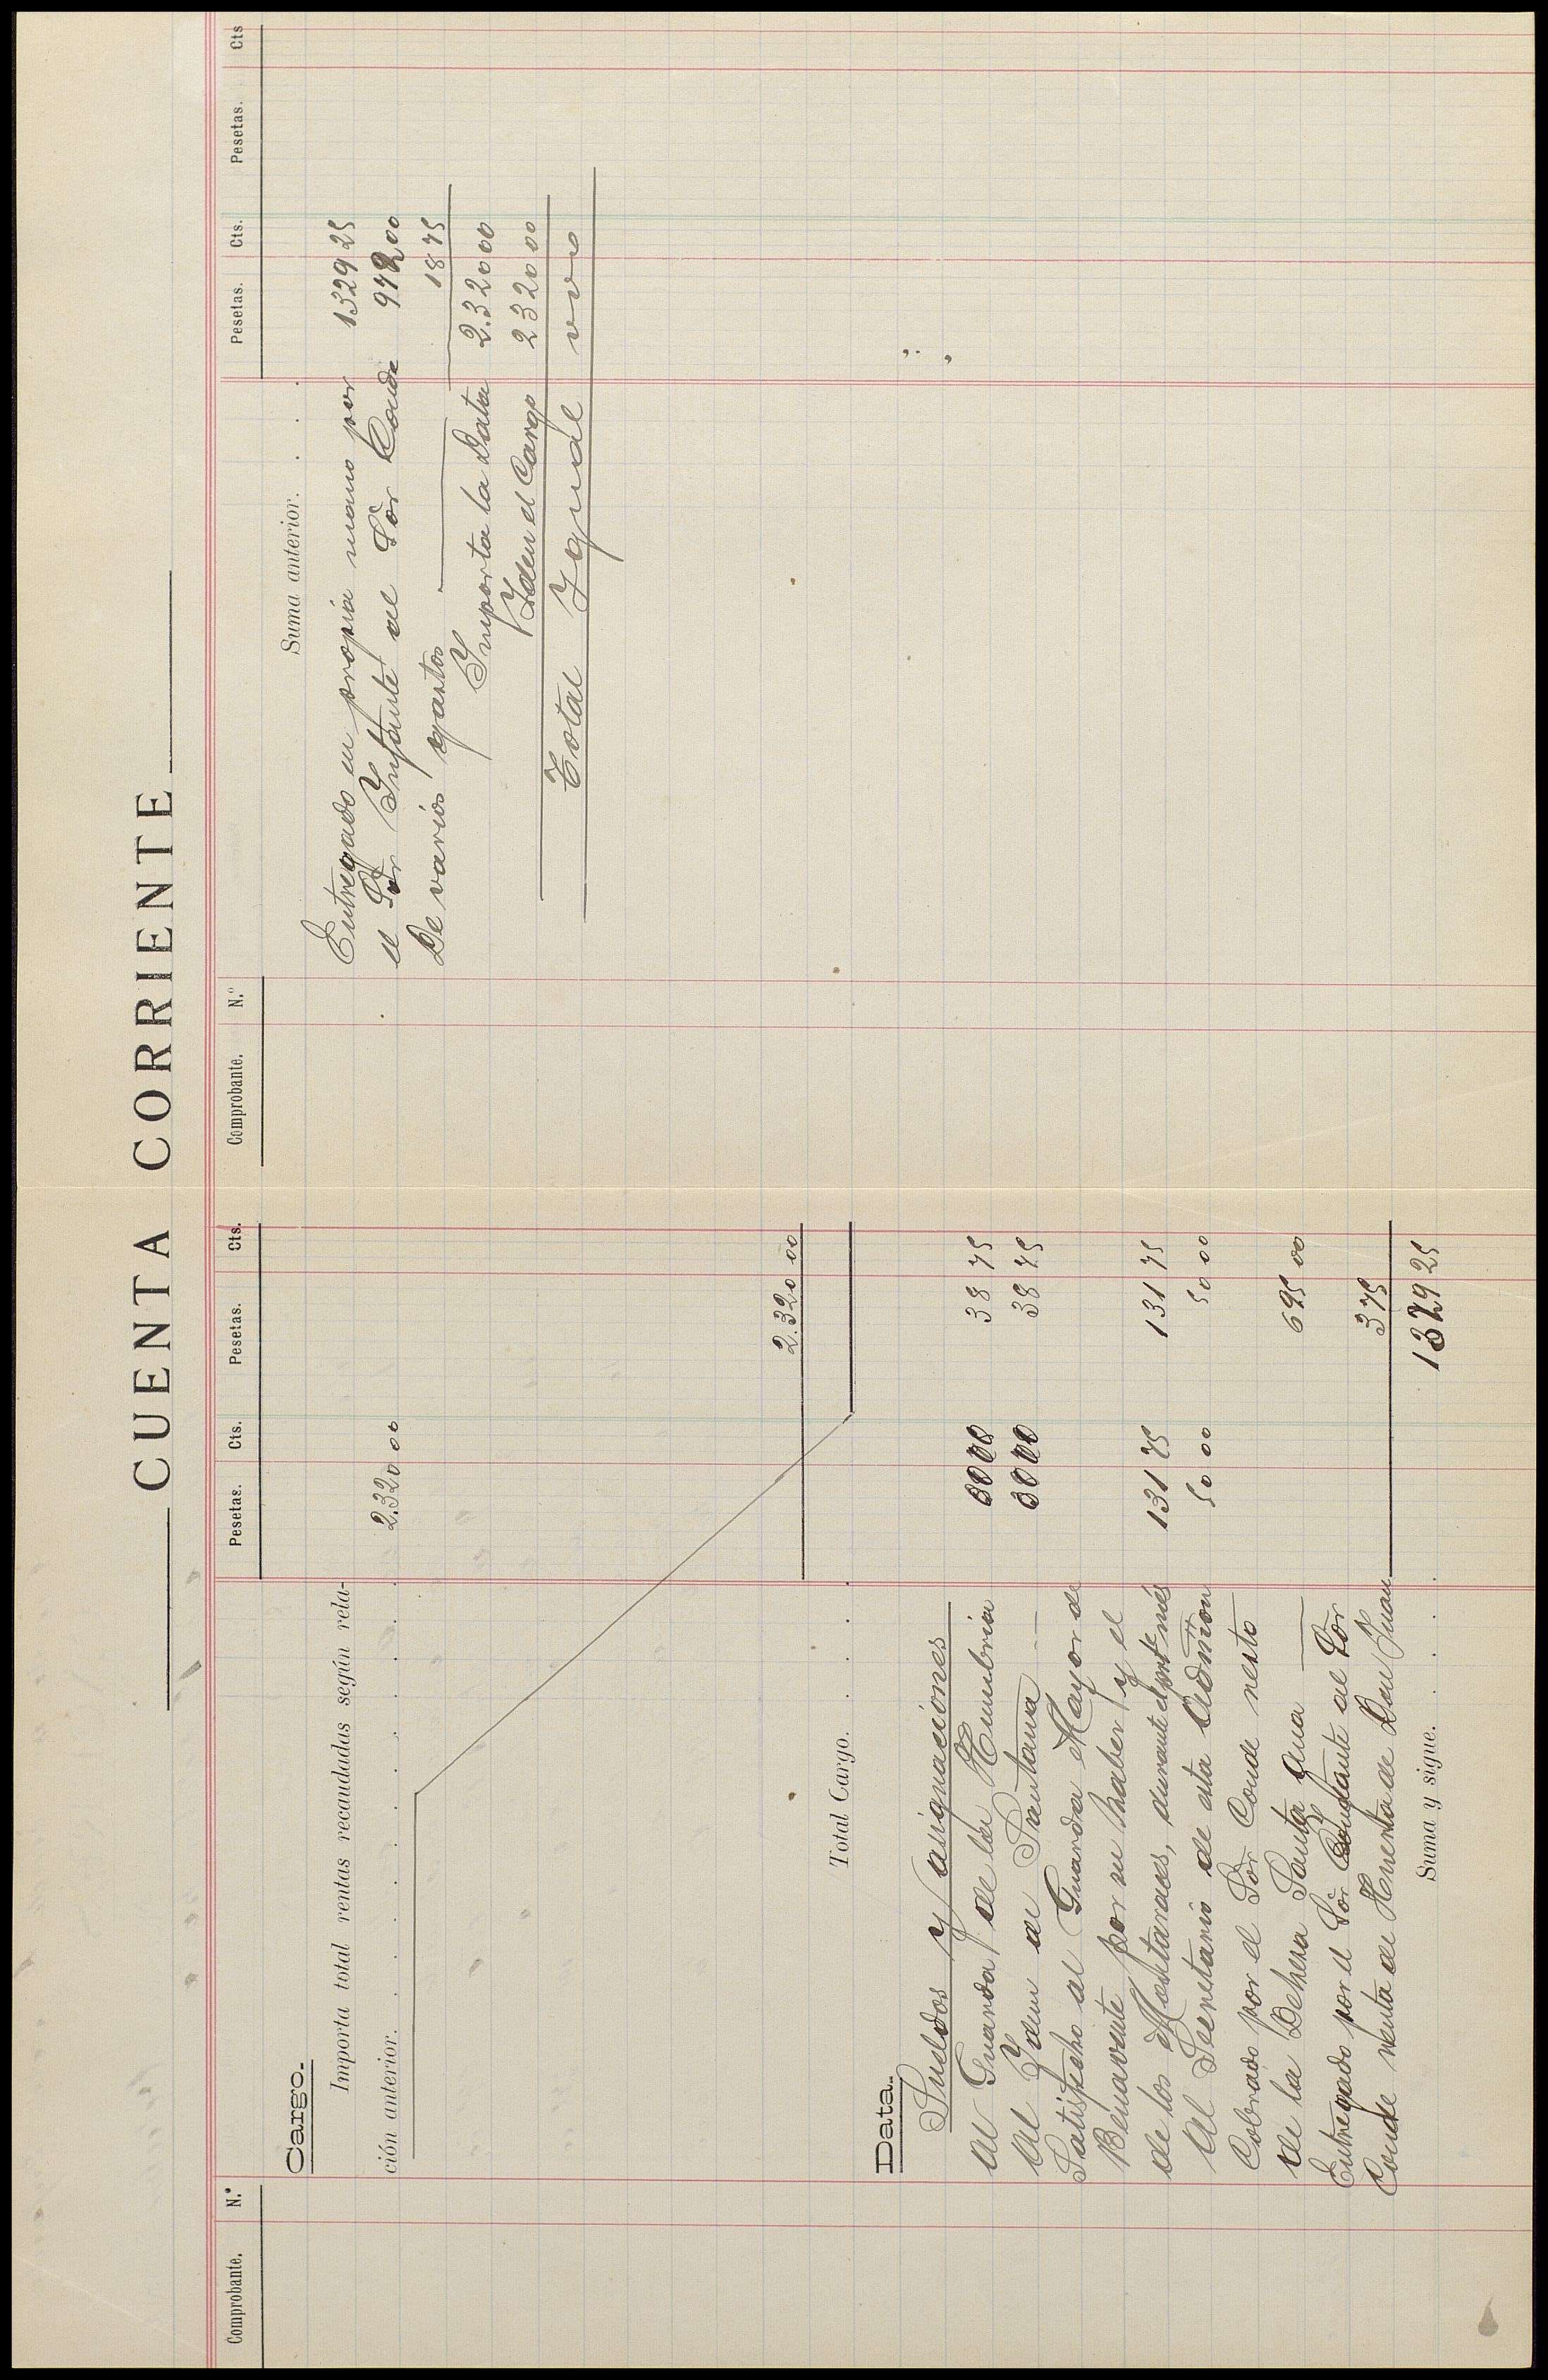 CUENTA CORRIENTE
Comprobante. N.º Pesetas. Cts. Pesetas. Cts.
Cargo.
Importa total rentas recaudadas según rela-
ción anterior. . . . . . . . . . 2.320 00
2.320 00
Total Cargo. . . . .
Data.
Sueldos y asignaciones
Al Guarda de la Humbria 0000 38 75
Al Idem de Santana 0000 38 75
Satisfecho al Guarda Mayor de
Benavente por su haber y el
de los Montaraces, durante el pnte més 131 75 131 75
Al Secretario de esta Admon 50 00 50 00
Cobrado por el Sor Conde resto
de la Dehesa Santa Ana 695 00
Entregado por el Sor Infante al Sor
Conde renta de Huerta de Don Juan 375
Suma y sigue. . . . . 1329 25
Comprobante. N.º Pesetas. Cts. Pesetas. Cts
Suma anterior. . . .
Entregado en propia mano por 1329 25
el Sor Infante al Sor Conde 972 00
De varios gastos 18 75
Importa la Data 2.320 00
Idem el Cargo 2320 00
Total Igual